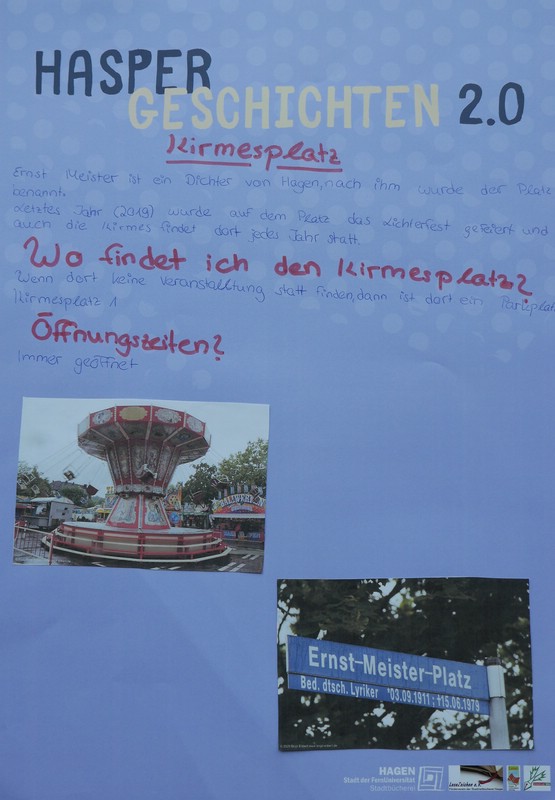 HASPER
GESCHICHTEN 2.0
Kirmesplatz
Ernst Meister ist ein Dichter von Hagen, nach ihm wurde der Platz
benannt.
Letztes Jahr (2019) wurde auf dem Platz das Lichterfest gefeiert und
auch die Kirmes findet dort jedes Jahr statt.
Wo findet ich den Kirmesplatz?
Wenn dort keine Veranstalltung statt finden, dann ist dort ein Parkplatz
Kirmesplatz 1
Öffnungszeiten?
Immer geöffnet
Ernst-Meister-Platz
Bed. dtsch. Lyriker *03.09.1911; †15.06.1979
HAGEN
Stadt der FernUniversität
Stadtbücherei
LeseZeichen e.V.